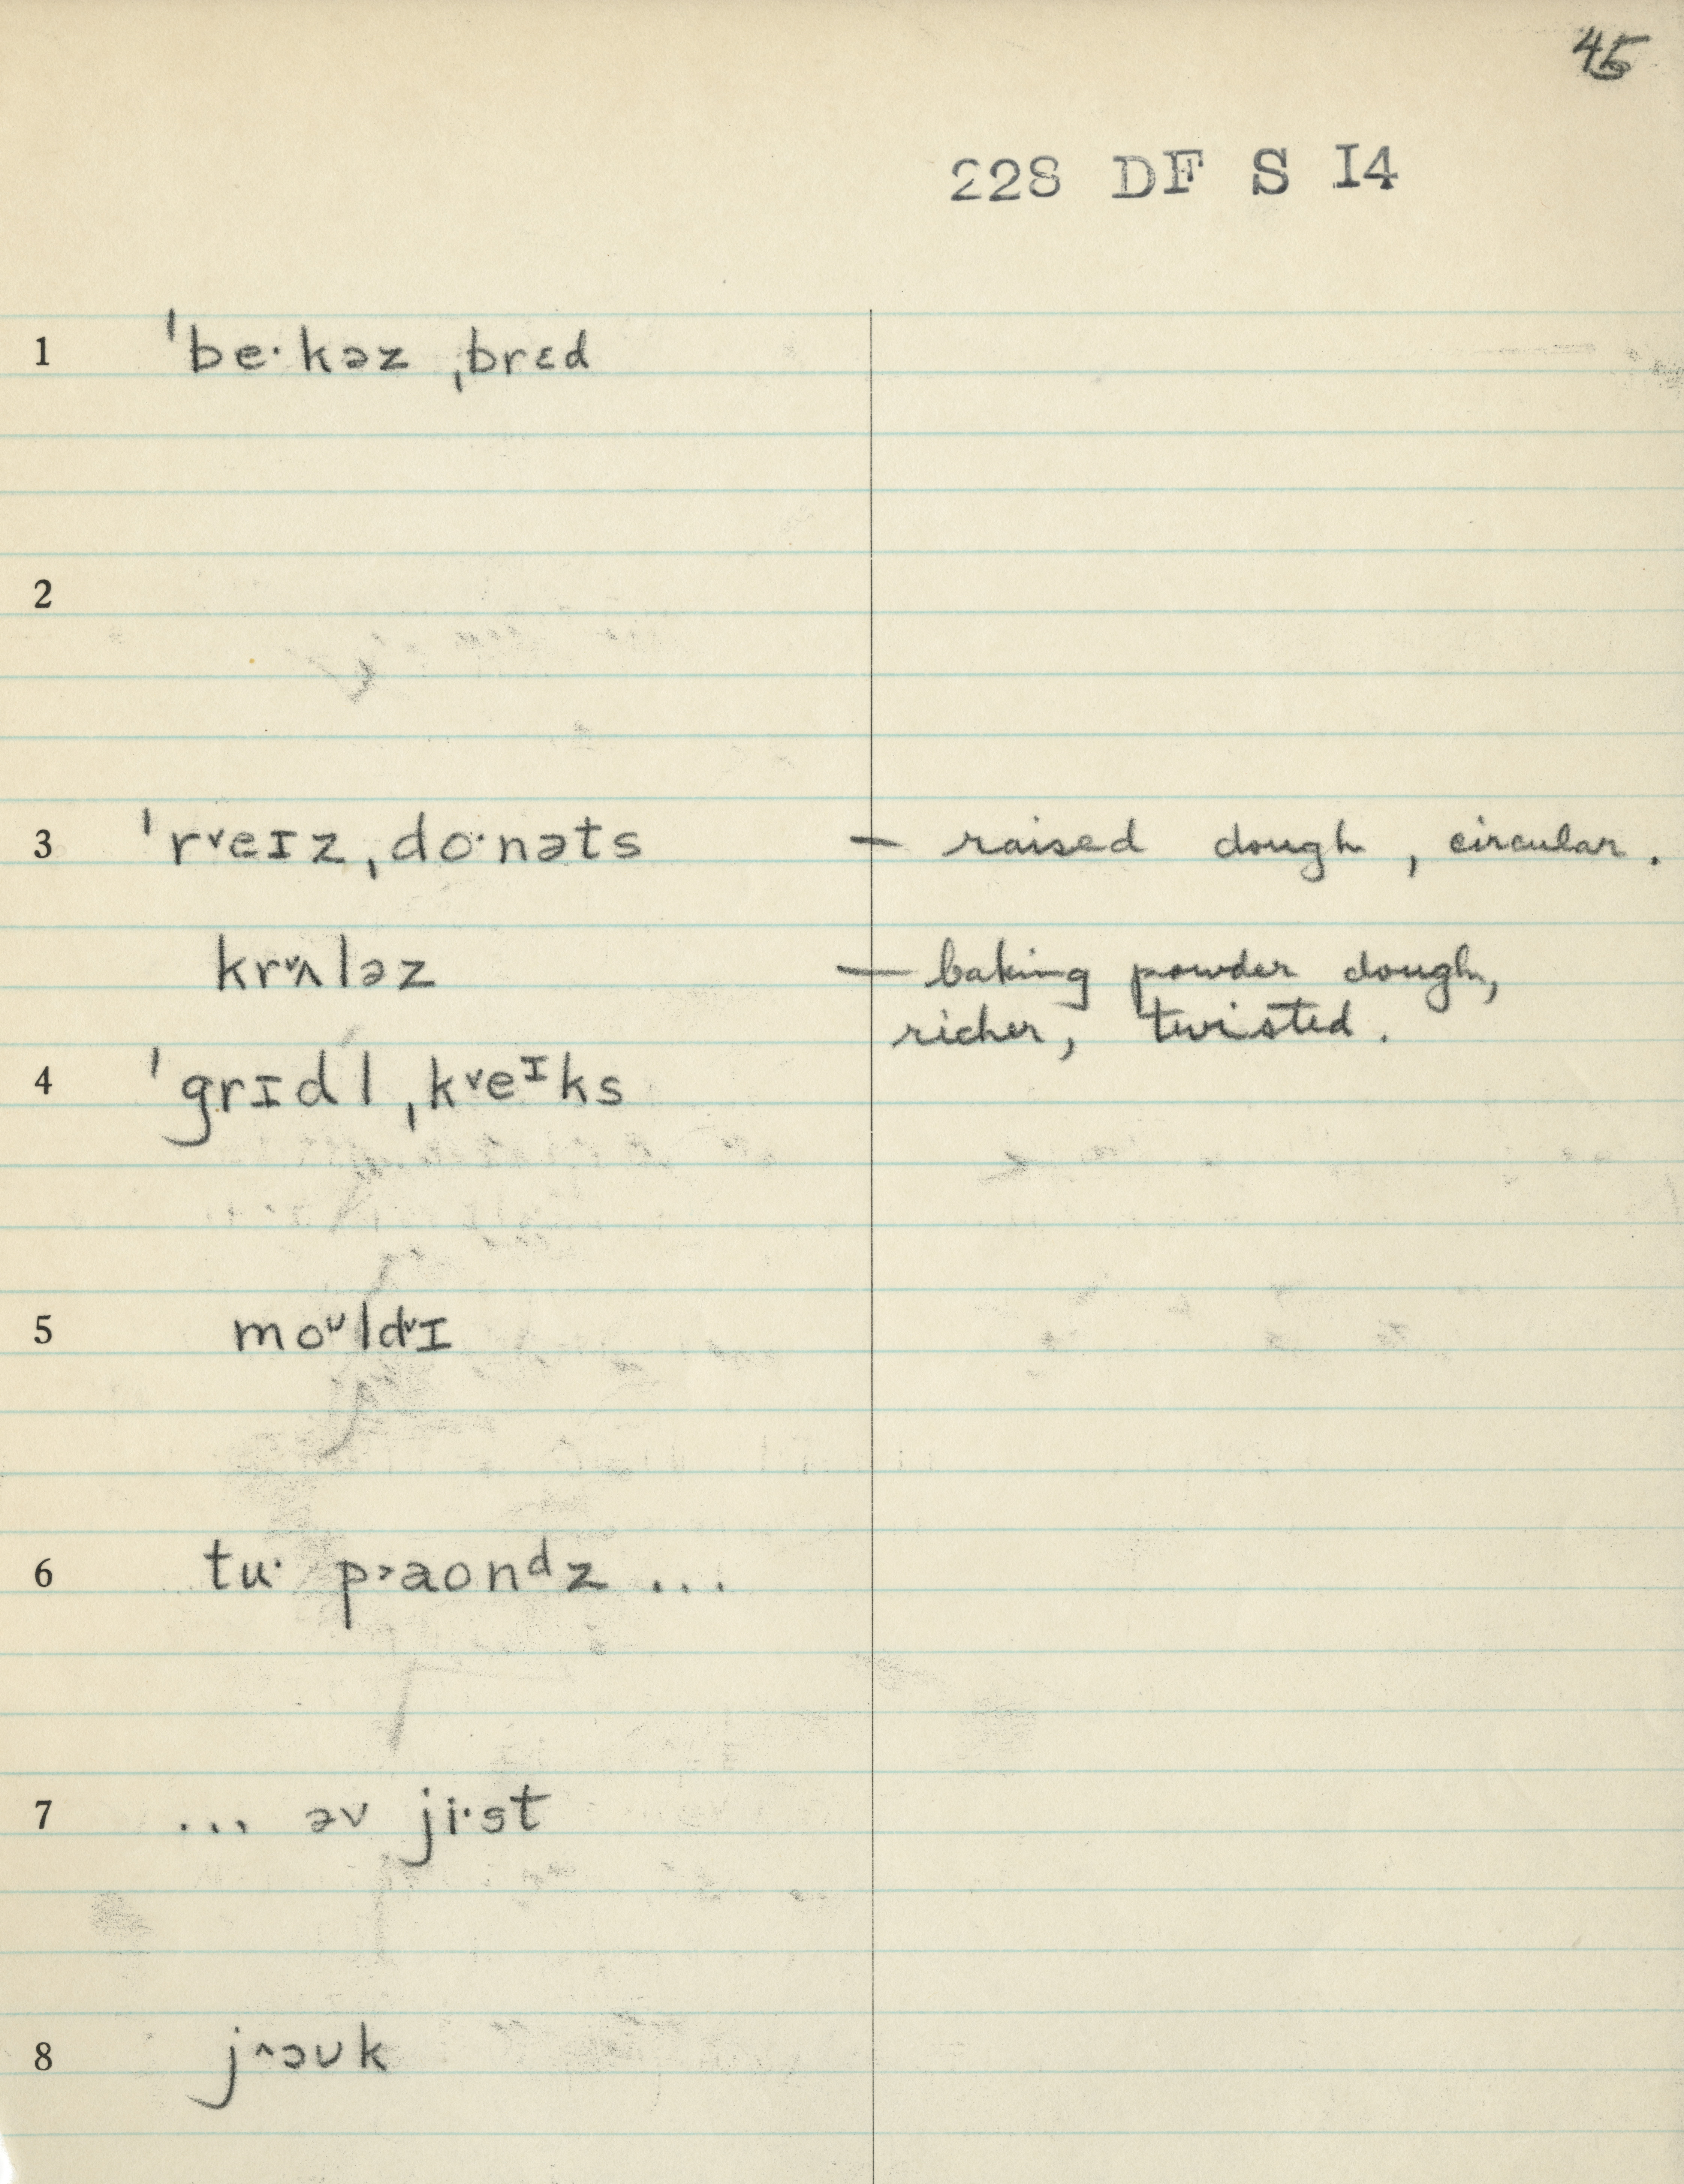 45
228 DF S I4
1 ˈbe·kəz ˌbrɛd
2
3 ˈr˅eɪz ˌdo·nəts — raised dough, circular.
kr˅ʌləz — baking powder dough,
richer, twisted.
4 ˈgrɪdl ˌk˅eᶦks
5 moᶷld˅ɪ
6 tu· p˃aonᵈz ...
7 ... əv ji·st
8 j˄ɔʊk